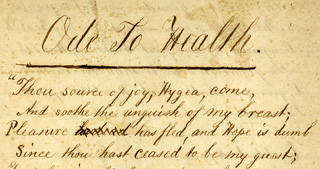 Ode To Health.
"Thou source of joy, Hygea, come,
And soothe the anguish of my breast;
Pleasure has fled, and Hope is dumb
Since thou hast ceased to be my guest;